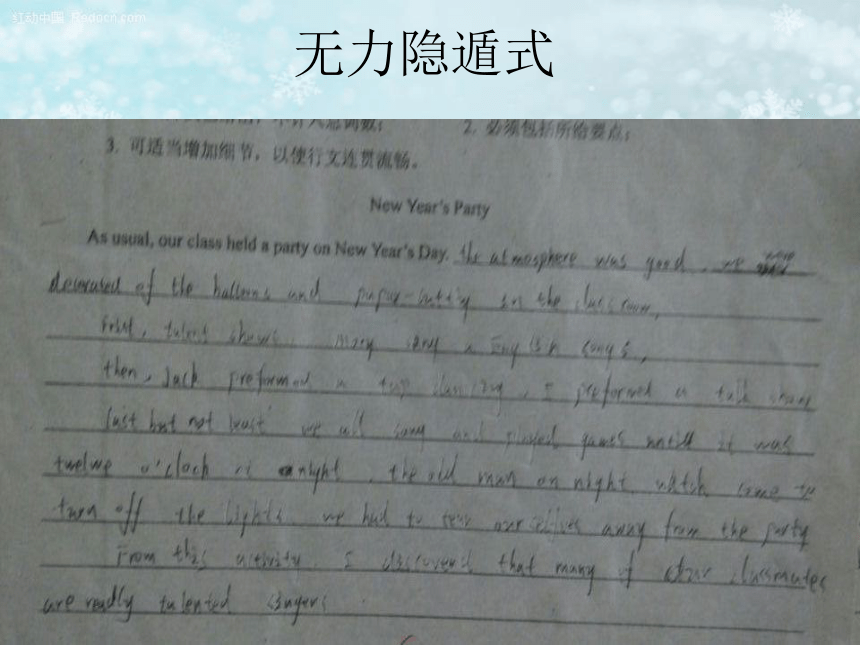 红动中国 Redocn.com
无力隐遁式
2. 必须包括所给要点；
3. 可适当增加细节，以使行文连贯流畅。
New Year's Party
As usual, our class held a party on New Year's Day. the atmosphere was good, we were
of the balloons and in the classroom,
talent shows. Mary sang English songs,
then, Jack preformed a tap dancing, I preformed a talk show
last but not least we all sang and played games untill it was
twelwe o'cloch at night, the old man on night watch come to
turn off the lights we had to tear ourselives away from the party
From this activity, I discovered that many of classmates
are really talented singers